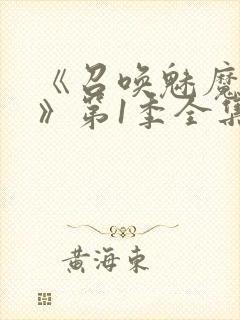 《召唤魅魔
》第1季全集
黄海东